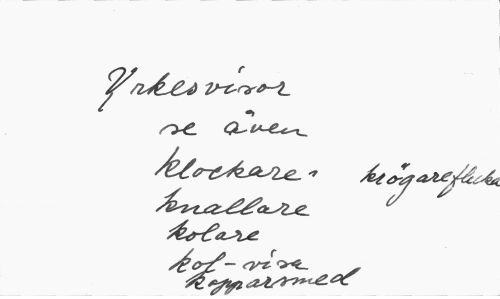 Yrkesvisor
se även
klockare" krögareflicka
knallare
kolare
kol-visa
kopparsmed